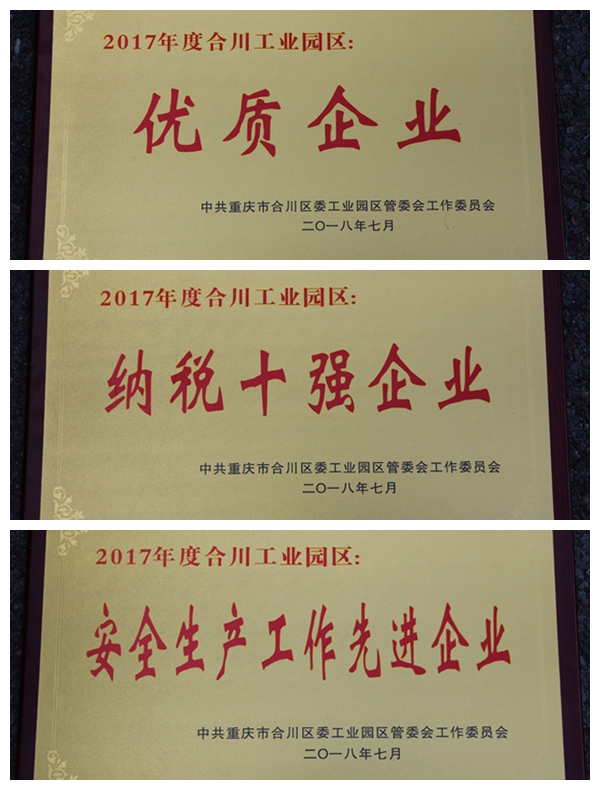 2017年度合川工业园区:
优质企业
中共重庆市合川区委工业园区管委会工作委员会
二〇一八年七月
2017年度合川工业园区:
纳税十强企业
中共重庆市合川区委工业园区管委会工作委员会
二〇一八年七月
2017年度合川工业园区:
安全生产工作先进企业
中共重庆市合川区委工业园区管委会工作委员会
二〇一八年七月